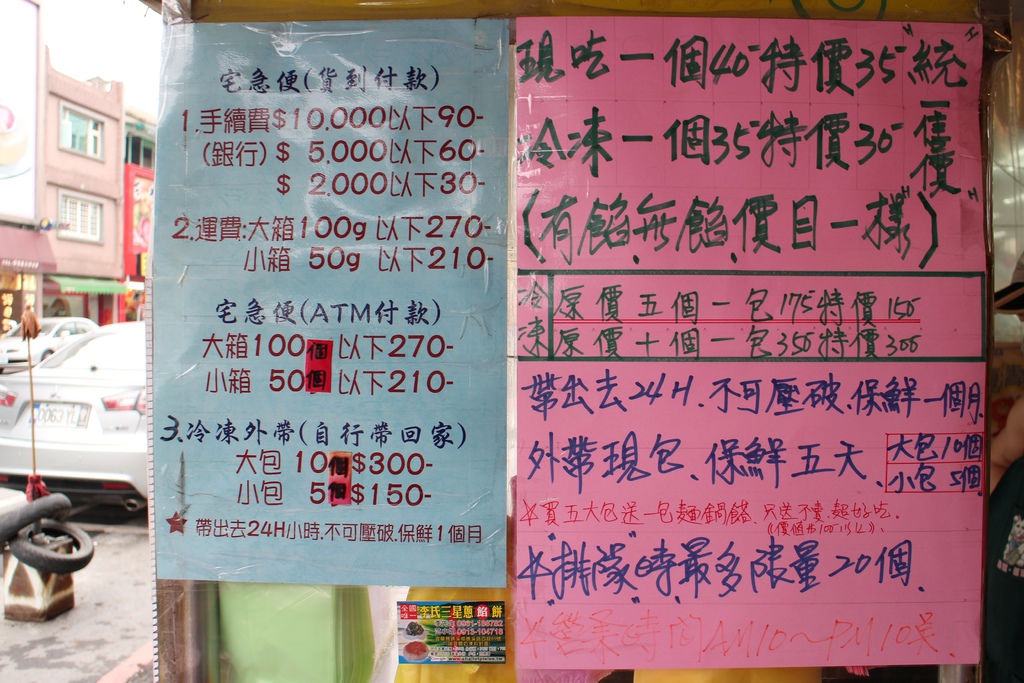 宅急便(貨到付款)
1.手續費$10,000以下90-
(銀行)$ 5,000以下60-
$ 2,000以下30-
2.運費:大箱100g以下270-
小箱 50g 以下210-
宅急便(ATM付款)
大箱100個以下270-
小箱 50個以下210-
3.冷凍外帶(自行帶回家)
大包 10個$300-
小包 5個$150-
★帶出去24H小時.不可壓破.保鮮1個月
現吃一個40-特價35-
冷凍一個35-特價30-
統一售價
(有餡.無餡.價目一樣)
冷凍
原價五個一包175特價150
原價十個一包350特價300
帶出去24H.不可壓破.保鮮一個月
外帶現包.保鮮五天
大包10個
小包5個
*買五大包送一包
只送不賣.超好吃.
*"排隊"時最多限量20個
*營業時間AM10~PM
李氏三星蔥餡餅